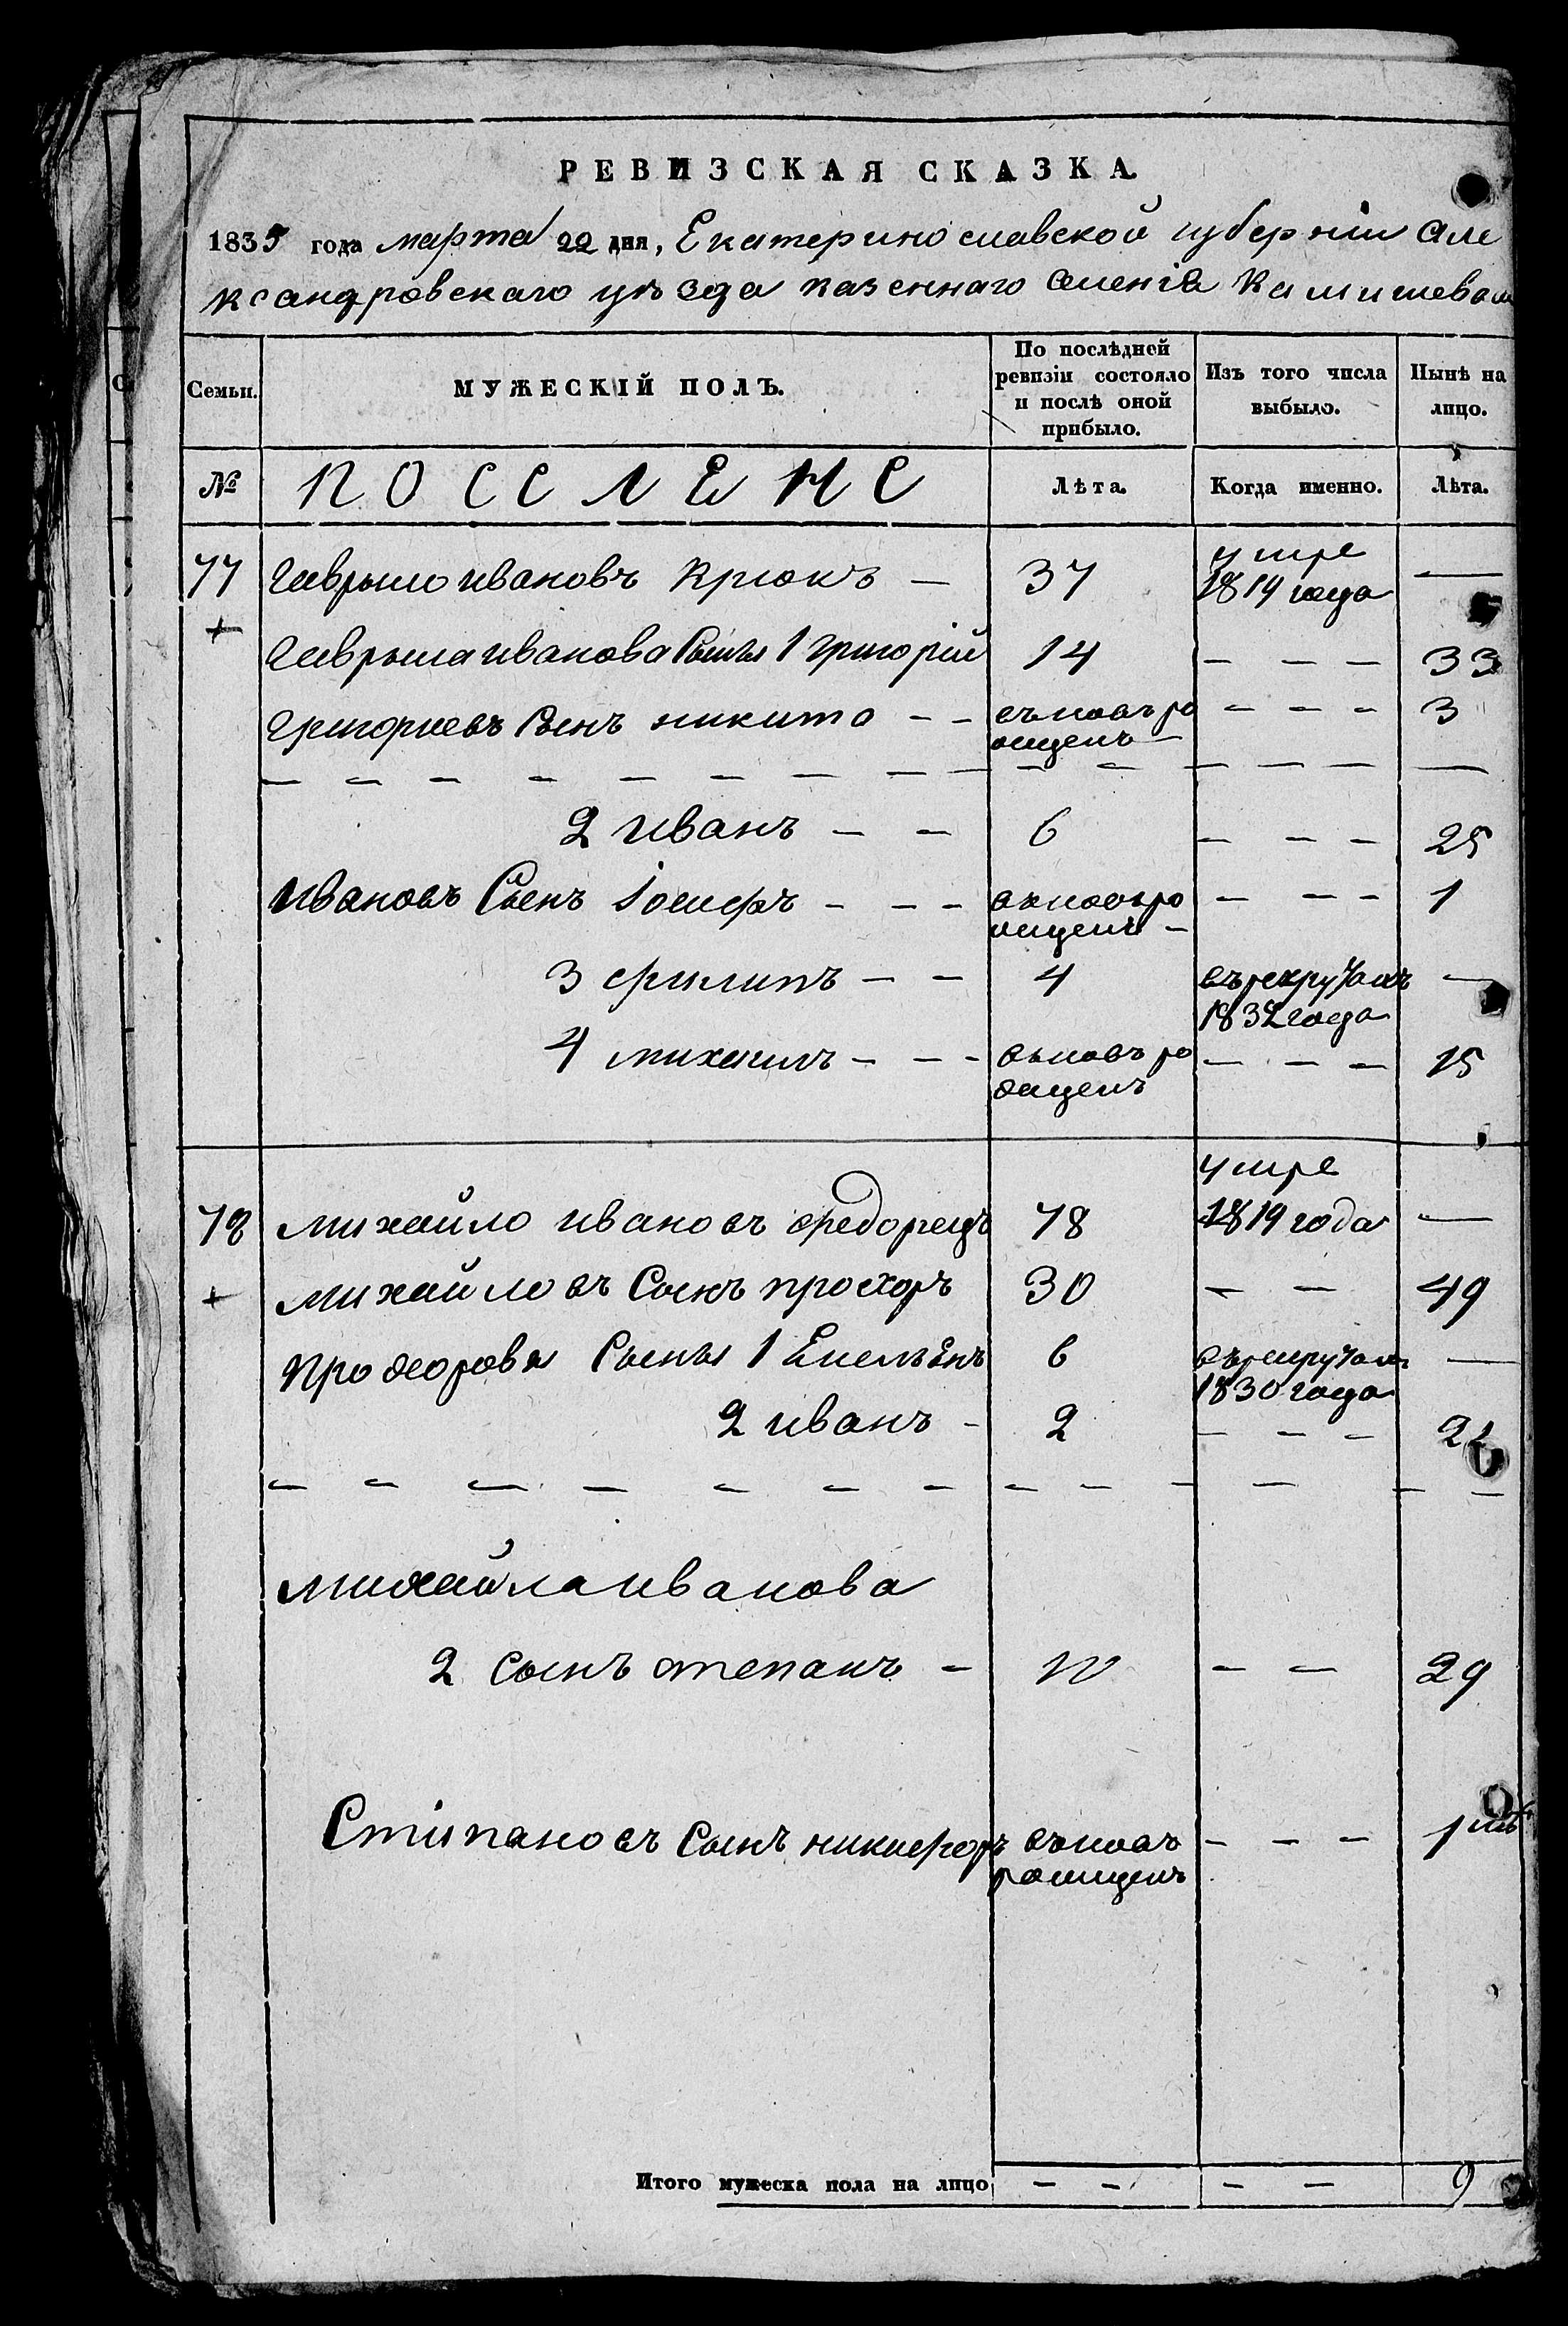 РЕВИЗСКАЯ СКАЗКА.
1835 года марта 22 дня, Екатеринославской губерніи Але
ксандровскаго уѣзда казеннаго селенія Камишеват
Семьи.
МУЖЕСКІЙ ПОЛЪ.
По послѣдней ревизіи состояло и послѣ оной прибыло.
Изъ того числа выбыло.
Нынѣ на лицо.
№ ПОСЕЛЕНЕ Лѣта. Когда именно. Лѣта.
77 Гаврыло ивановъ Крюкъ — 37 умре 1819 года —
+ Гаврыла иванова Сыны 1 Григорій 14 — — — 33
Григориевъ Сынъ никита — — вновъ рожденъ — — — — 3
2 иванъ — — 6 — — — 25
Ивановъ Сынъ Іосифъ — — — вновъ рожденъ — — — — 1
3 филипъ — — 4 въ рекрутахъ 1832 года —
4 михаилъ — — — вновъ рожденъ — — — 15
78 михайло ивановъ федорецъ 78 умре 1819 года —
+ михайловъ Сынъ прохоръ 30 — — 49
Прохорова Сыны 1 Емельѣнъ 6 въ рекрутахъ 1830 года —
2 иванъ — 2 — — — 21
михайла иванова
2 сынъ степанъ — 10 — — 29
Стіпановъ Сынъ никифоръ вновъ рожденъ — — — 1
Итого мужеска пола на лицо — — — — 9